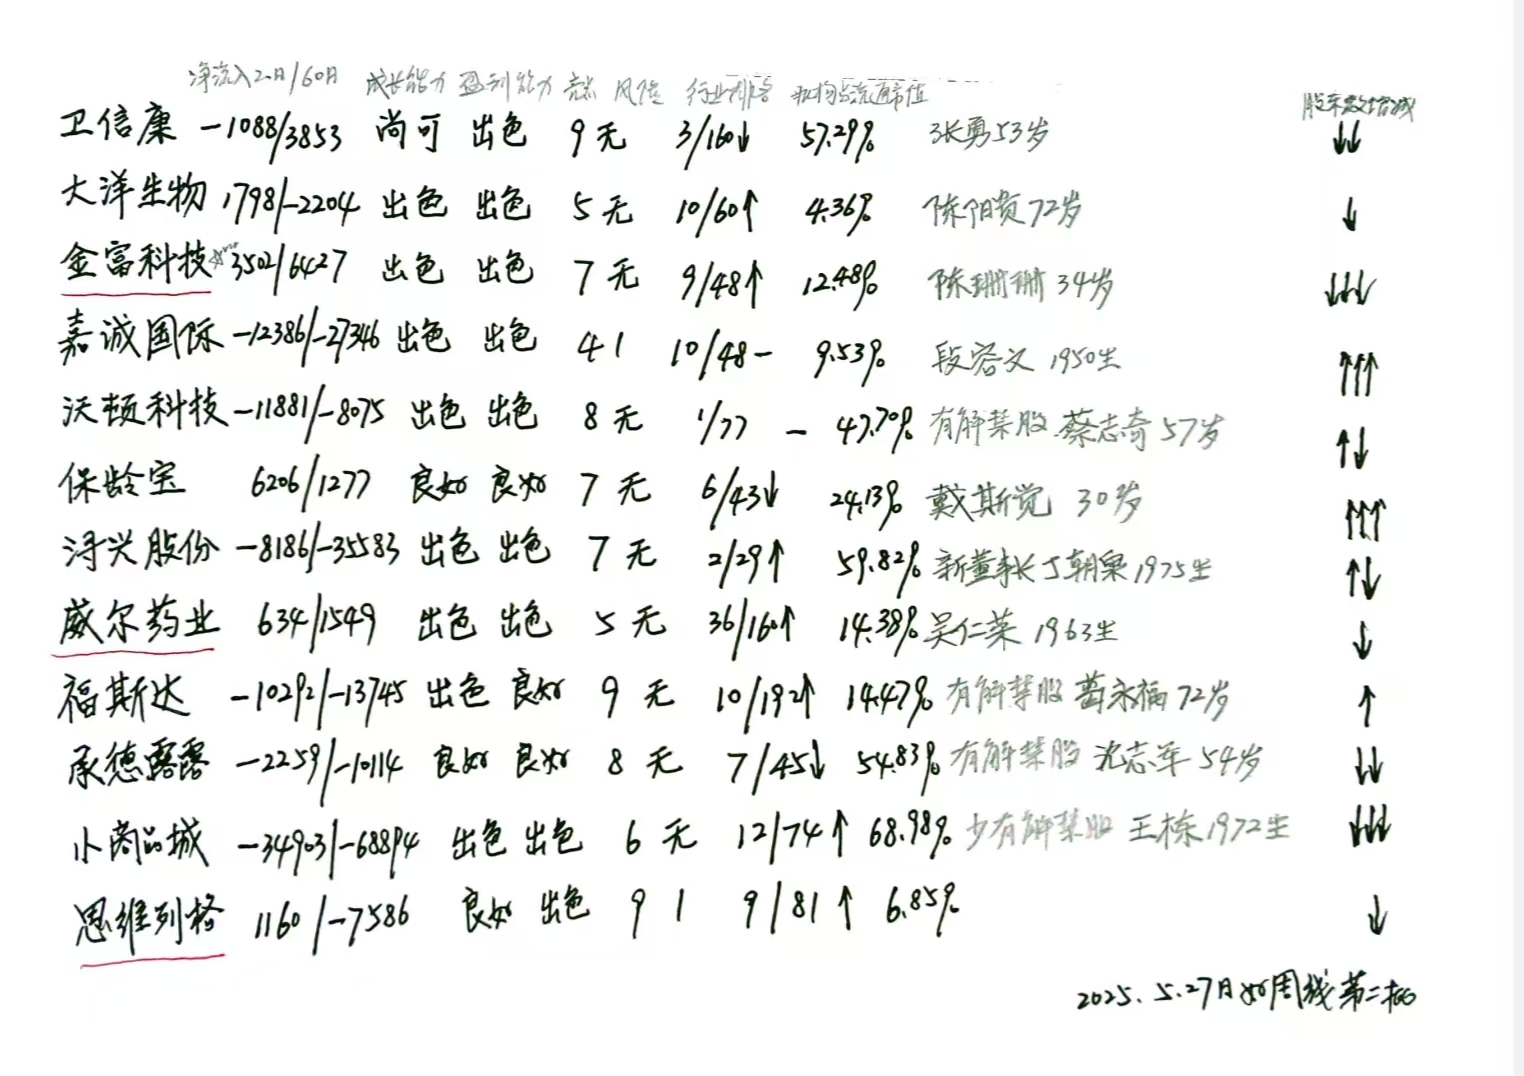 净流入20日/60日 成长能力 盈利能力 亮点 风险 行业排名 机构占流通市值 股东数增减
卫信康 -1088/3853 尚可 出色 9 无 3/160↓ 57.29% 张勇53岁 ↓↓
大洋生物 1798/-2204 出色 出色 5 无 10/60↑ 4.36% 陈阳贵72岁 ↓
金富科技 3502/6427 出色 出色 7 无 9/48↑ 12.48% 陈珊珊 34岁 ↓↓↓
嘉诚国际 -12386/-27346 出色 出色 4 1 10/48- 9.53% 段容文 1950生 ↑↑↑
沃顿科技 -11881/-8075 出色 出色 8 无 1/77 - 47.70% 有解禁股 蔡志奇 57岁 ↑↓
保龄宝 6206/1277 良好 良好 7 无 6/43↓ 24.13% 戴斯觉 30岁 ↑↑↑
浔兴股份 -8186/-35583 出色 出色 7 无 2/29↑ 59.82% 新董事长丁朝泉1975生 ↑↓
威尔药业 634/1549 出色 出色 5 无 36/160↑ 14.38% 吴仁荣 1963生 ↓
福斯达 -10292/-13745 出色 良好 9 无 10/192↑ 14.47% 有解禁股 葛水福72岁 ↑
承德露露 -2259/-10114 良好 良好 8 无 7/45↓ 54.83% 有解禁股 沈志军 54岁 ↓↓
小商品城 -34903/-68894 出色 出色 6 无 12/74↑ 68.98% 少有解禁股 王栋1972生 ↓↓↓
思维列格 1160/-7586 良好 出色 9 1 9/81↑ 6.85% ↓
2025.5.27日如周线第二板